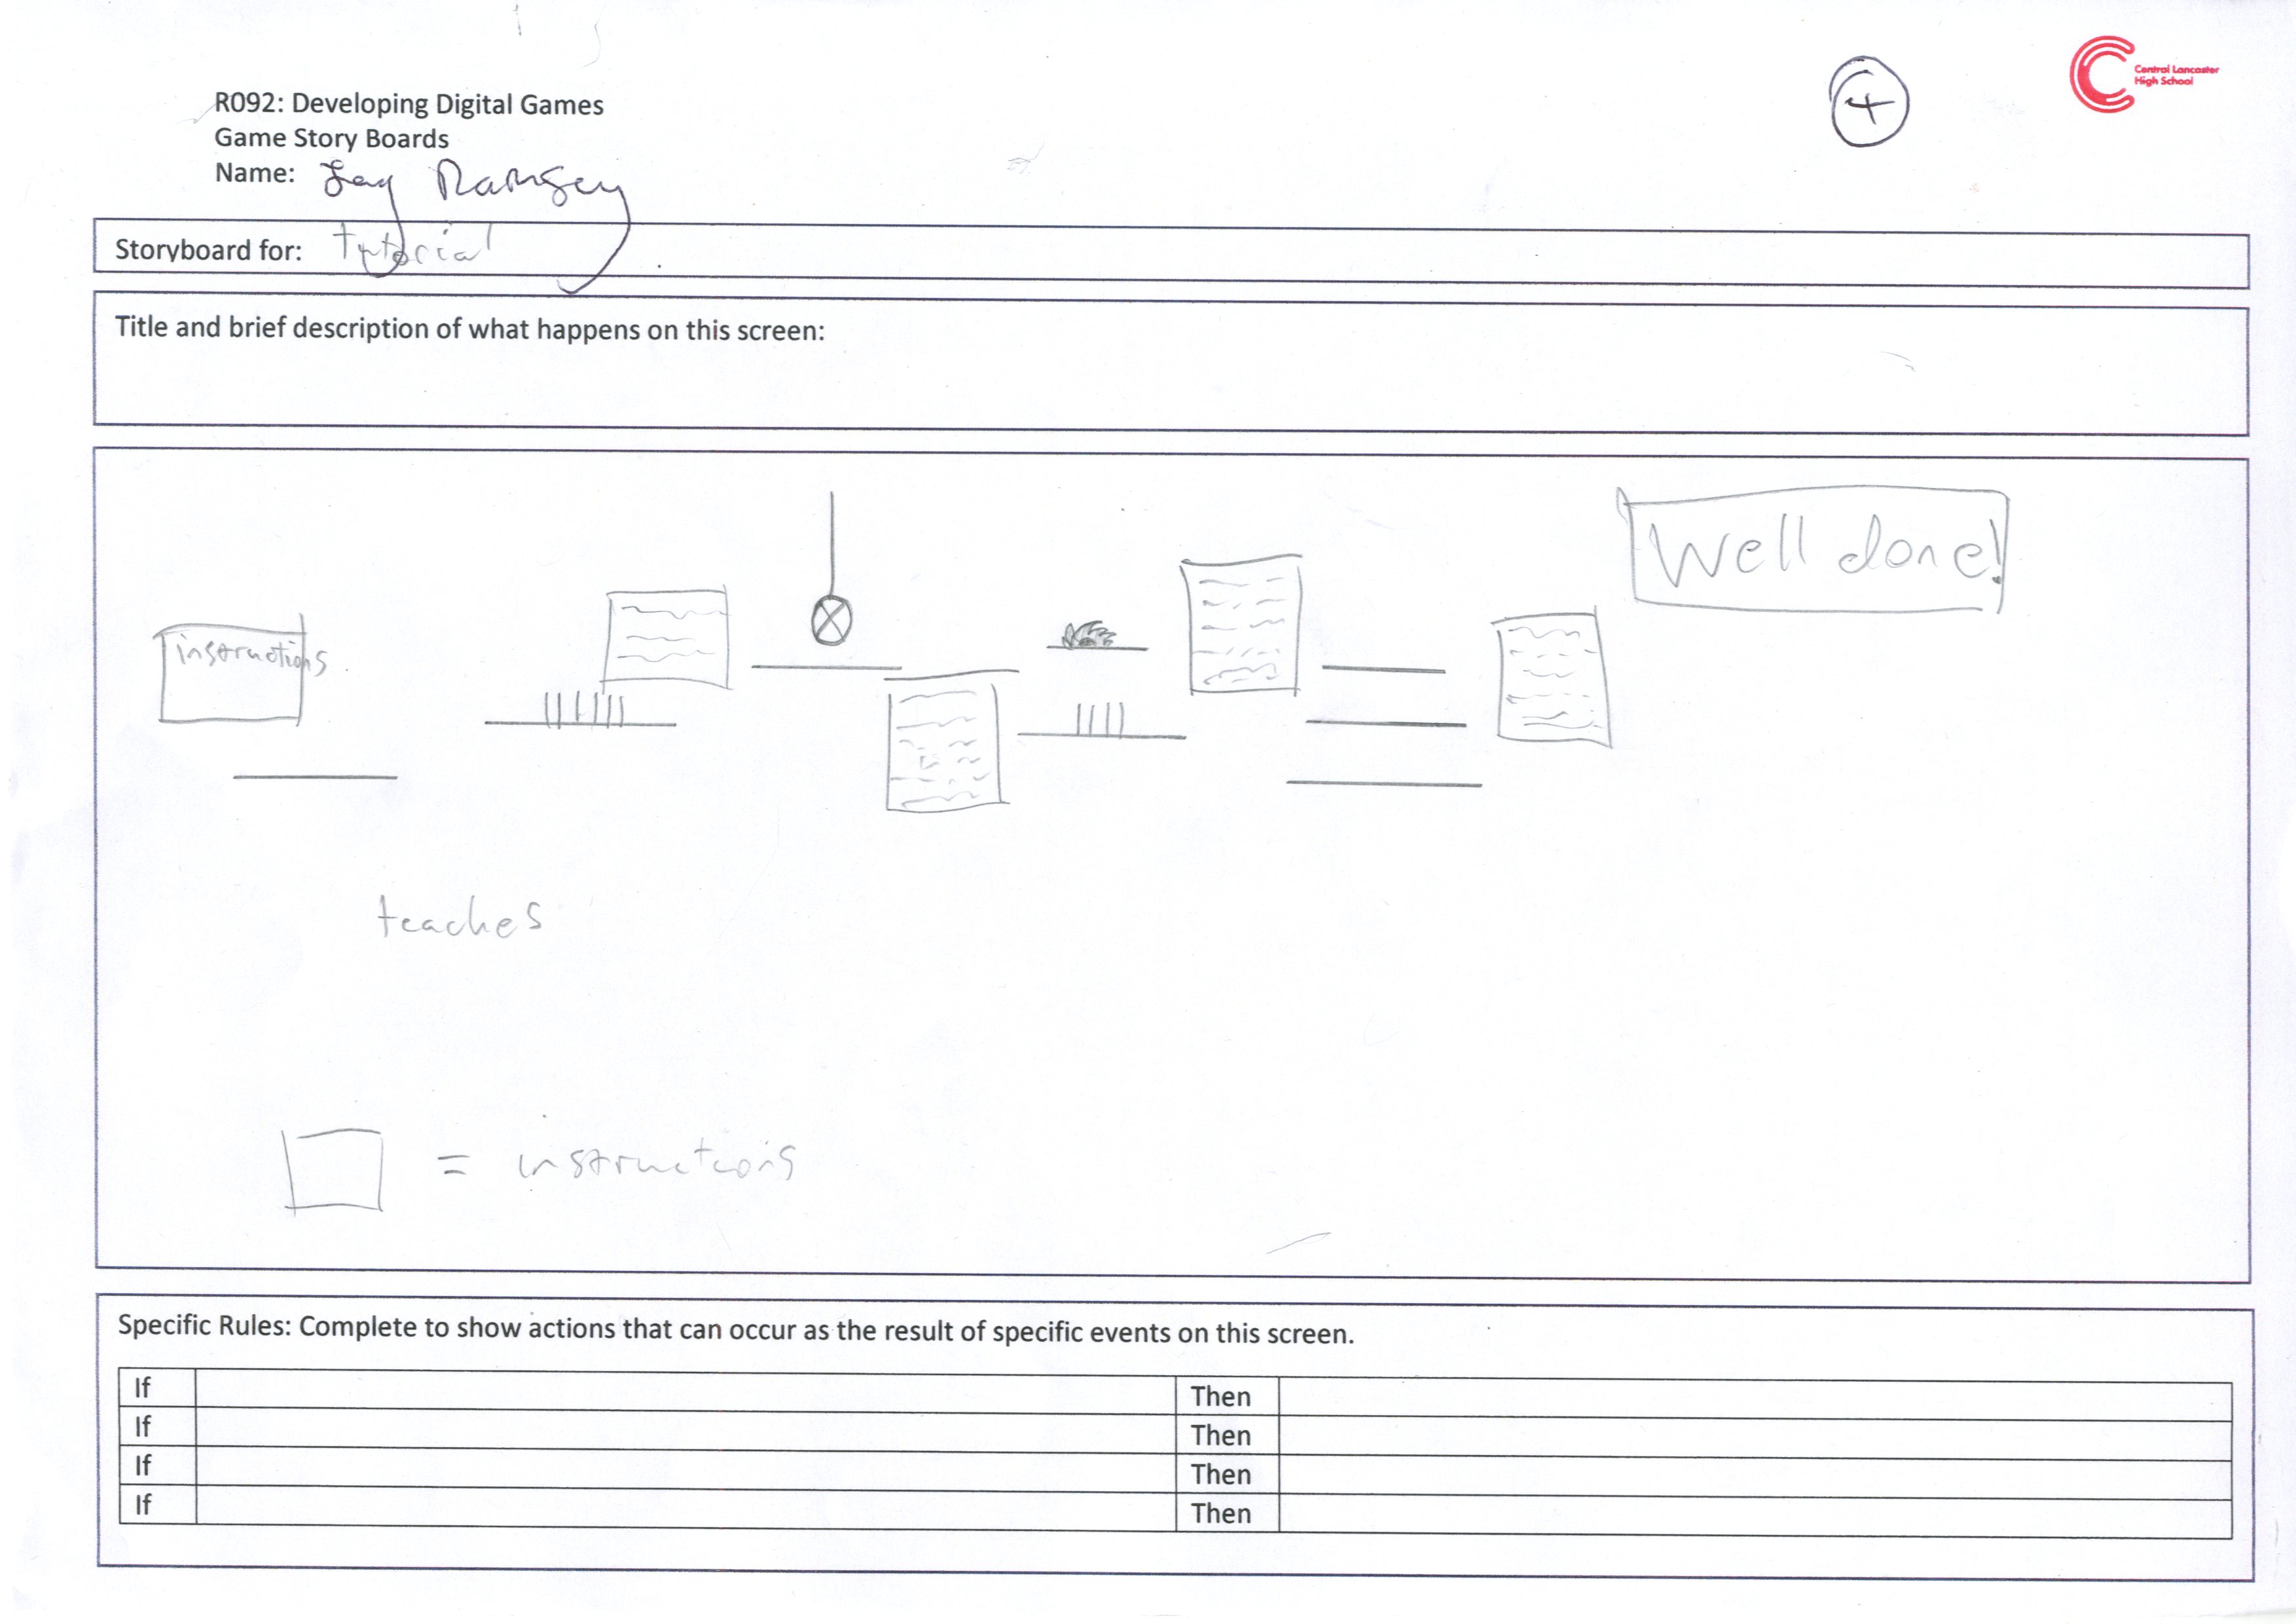 R092: Developing Digital Games
Game Story Boards
Name: Jay Ramsey
4
Central Lancaster
High School
Storyboard for: Tutorial
Title and brief description of what happens on this screen:
Well done!
instructions
teaches
= instructions
Specific Rules: Complete to show actions that can occur as the result of specific events on this screen.
If Then
If Then
If Then
If Then